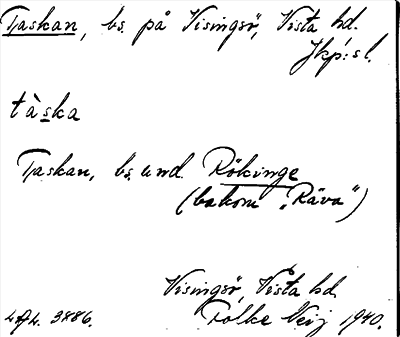 Taskan, bs. på Visingsö, Vista hd.
Jkp:s l.
tàska
Taskan, bs. und. Rökinge
(bakom „Räva")
Visingsö, Vista hd.
4786. Folke Neij 1940.